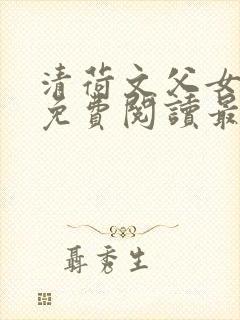 清荷文父女
免費閱讀最
聶秀生